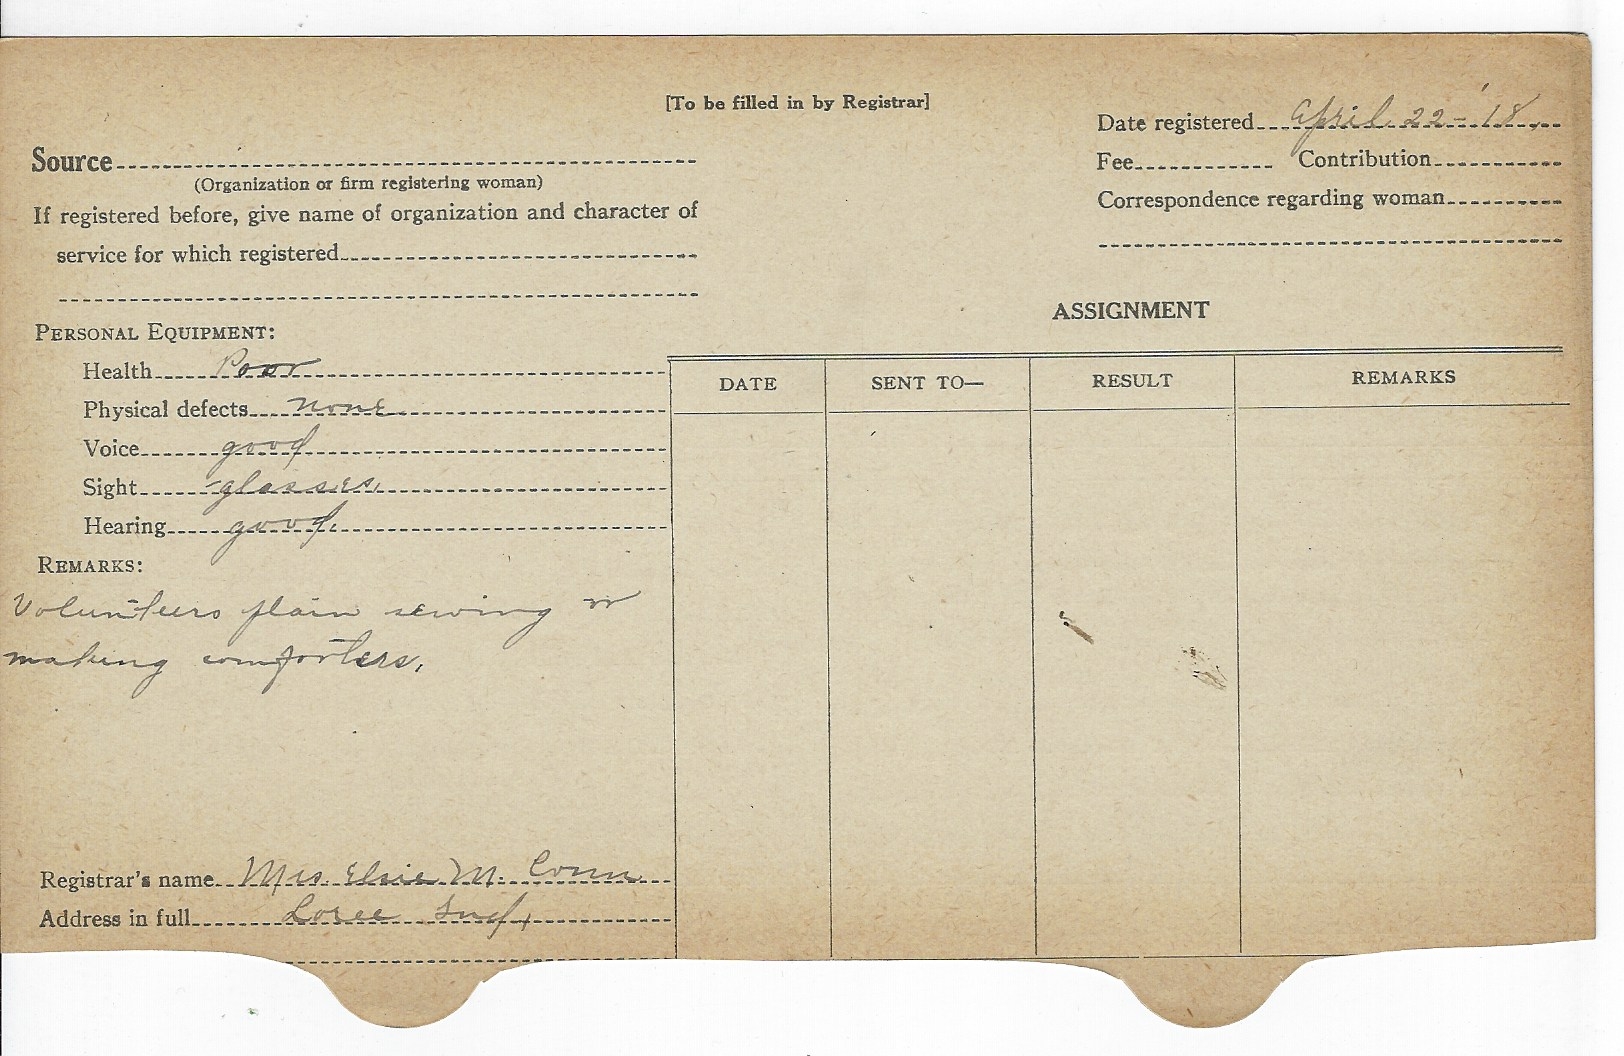 [To be filled in by Registrar]
Date registered April 22-'18.
Source
Fee Contribution
(Organization or firm registering woman)
Correspondence regarding woman
If registered before, give name of organization and character of
service for which registered
ASSIGNMENT
PERSONAL EQUIPMENT:
Health Poor
Physical defects none
Voice good
Sight -glasses.
Hearing good.
DATE SENT TO— RESULT REMARKS
REMARKS:
Volunteers plain sewing or
making comforters.
Registrar's name Mrs. Elsie M. Conn
Address in full Loree Ind.